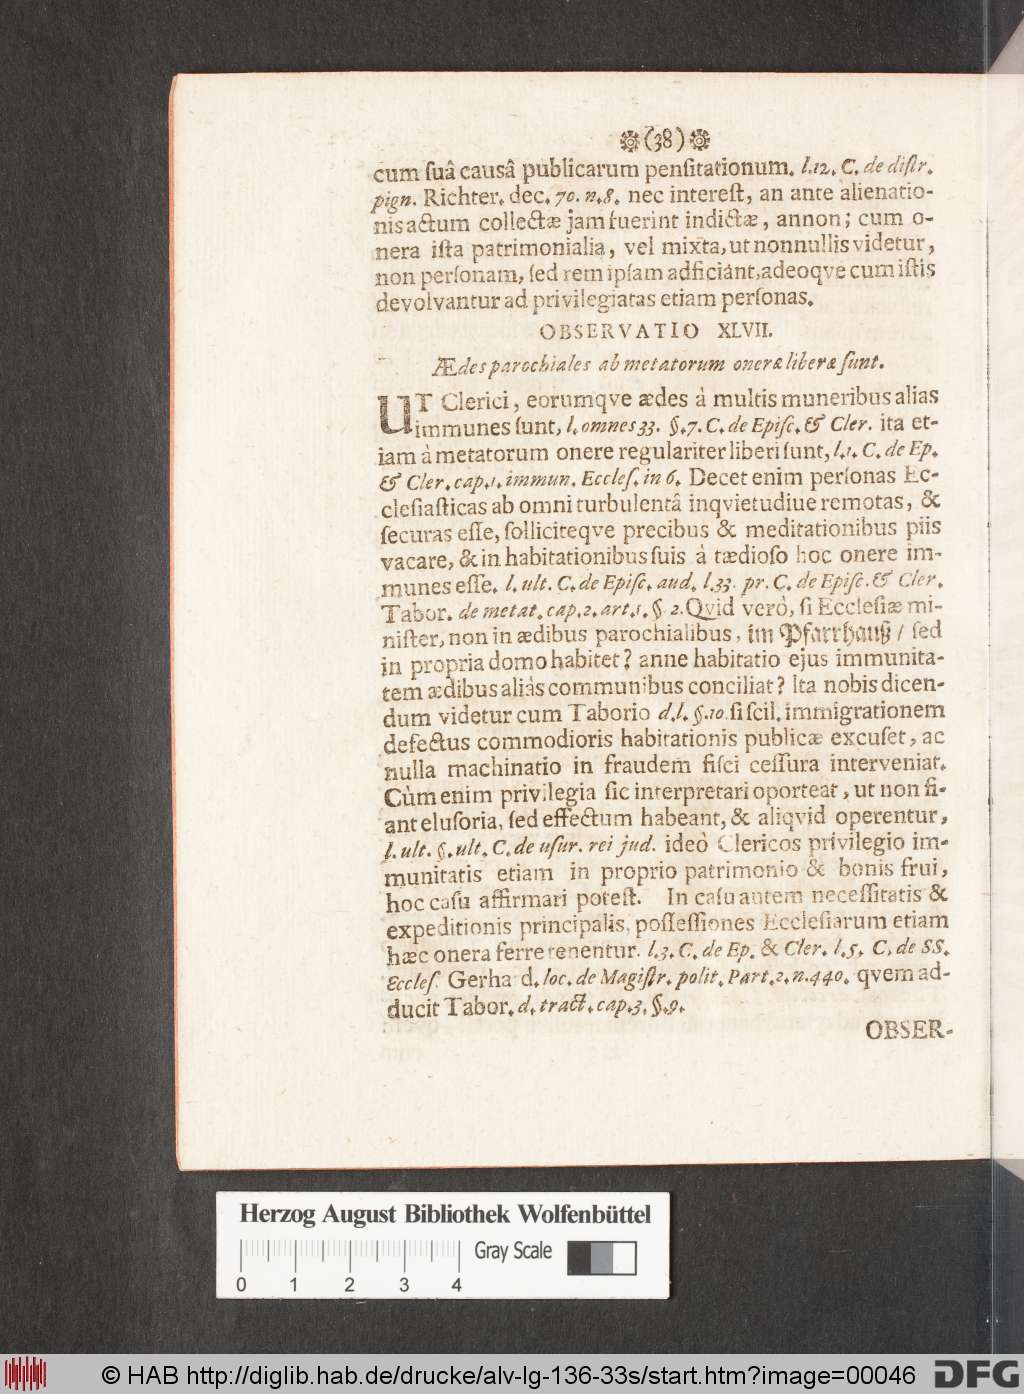 (38)
cum ſuâ causâ publicarum penſitationum. l.12. C. de diſtr.
pign. Richter. dec. 70. n.8. nec intereſt, an ante alienatio-
nis actum collectæ jam fuerint indictæ, annon; cum o-
nera iſta patrimonialia, vel mixta, ut nonnullis videtur,
non perſonam, ſed rem ipſam adficiant, adeoqve cum iſtis
devolvantur ad privilegiatas etiam perſonas.
OBSERVATIO XLVII.
Ædes parochiales ab metatorum onere liberæ ſunt.
UT Clerici, eorumqve ædes à multis muneribus alias
immunes ſunt, l. omnes 33. §.7. C. de Epiſc. & Cler. ita et-
iam à metatorum onere regulariter liberi ſunt, l.1. C. de Ep.
& Cler. cap.1. immun. Eccleſ. in 6. Decet enim perſonas Ec-
cleſiaſticas ab omni turbulentâ inqvietudiue remotas, &
ſecuras eſſe, ſolliciteqve precibus & meditationibus piis
vacare, & in habitationibus ſuis à tædioſo hoc onere im-
munes eſſe. l. ult. C. de Epiſc. aud. l.33. pr. C. de Epiſc. & Cler.
Tabor. de metat. cap.2. art.1. §. 2. Qvid verò, ſi Eccleſiæ mi-
niſter, non in ædibus parochialibus, im Pfarrhauß / ſed
in propria domo habitet? anne habitatio ejus immunita-
tem ædibus aliàs communibus conciliat? Ita nobis dicen-
dum videtur cum Taborio d.l. §.10. ſi ſcil. immigrationem
defectus commodioris habitationis publicæ excuſet, ac
nulla machinatio in fraudem fiſci ceſſura interveniat.
Cùm enim privilegia ſic interpretari oporteat, ut non fi-
ant eluſoria, ſed effectum habeant, & aliqvid operentur,
l. ult. §. ult. C. de uſur. rei jud. ideò Clericos privilegio im-
munitatis etiam in proprio patrimonio & bonis frui,
hoc caſu affirmari poteſt. In caſu autem neceſſitatis &
expeditionis principalis, poſſeſſiones Eccleſiarum etiam
hæc onera ferre tenentur. l.3. C. de Ep. & Cler. l.5. C. de SS.
Eccleſ. Gerha d. loc. de Magiſtr. polit. Part.2. n.440. qvem ad-
ducit Tabor. d. tract. cap.3. §.9.
OBSER-
Herzog August Bibliothek Wolfenbüttel
Gray Scale
0 1 2 3 4
© HAB http://diglib.hab.de/drucke/alv-lg-136-33s/start.htm?image=00046
DFG